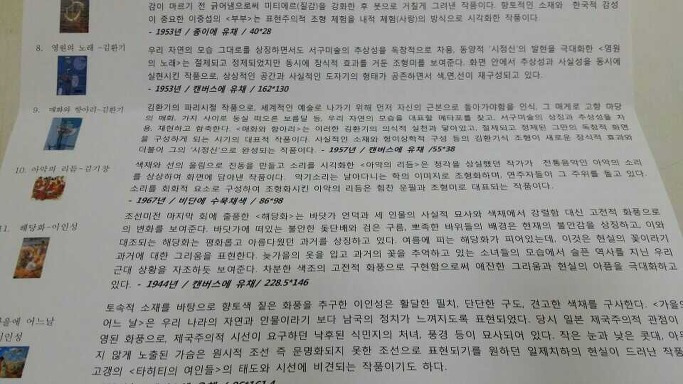 감이 마르기 전 긁어냄으로써 마티에르(질감)을 강화한 후 붓으로 거칠게 그려낸 작품이다. 향토적인 소재와 한국적 감성
이 중요한 이중섭의 <부부>는 표현주의적 조형 체험을 내적 체험(사랑)의 방식으로 시각화한 작품이다.
- 1953년 / 종이에 유채 / 40*28
8. 영원의 노래 -김환기
우리 자연의 모습 그대로를 상징하면서도 서구미술의 추상성을 독창적으로 차용, 동양적 '시정신'의 발현을 극대화한 <영원
의 노래>는 절제되고 정제되었지만 동시에 장식적 효과를 거둔 조형미를 보여준다. 화면 안에서 추상성과 사실성을 동시에
실현시킨 작품으로, 상상적인 공간과 사실적인 도자기의 형태가 공존하면서 색,면,선이 재구성되고 있다.
- 1953년 / 캔버스에 유채 / 162*130
9. 매화와 항아리-김환기
김환기의 파리시절 작품으로, 세계적인 예술로 나가기 위해 먼저 자신의 근본으로 돌아가야함을 인식, 그 매개로 고향 마당
의 매화, 가지 사이로 둥실 떠오른 보름달 등, 우리 자연의 모습을 대표할 메타포를 찾고, 서구미술의 상징과 추상성을 차
용, 재현하고 함축한다. <매화와 항아리>는 이러한 김환기의 의식적 실천과 닿아있고, 절제되고 정제된 그만의 독창적 화면
을 구성하게 되는 시기의 대표적 작품이다. 사실적인 소재와 형이상학적 구성 등의 김환기식 조형이 새로운 장식적 효과와
더불어 그의 '시정신'으로 완성되는 작품이다. - 1957년 / 캔버스에 유채 /55*38
10. 아악의 리듬-김기창
색채와 선의 울림으로 진동을 만들고 소리를 시각화한 <아악의 리듬>은 청각을 상실했던 작가가 전통음악인 아악의 소리
를 상상하여 화면에 담아낸 작품이다. 악기소리는 날아다니는 학의 이미지로 조형화하며, 연주자들이 그 주위를 돌고 있다.
소리를 회화적 요소로 구성하여 조형화시킨 아악의 리듬은 힘찬 운필과 조형미로 대표되는 작품이다.
- 1967년 / 비단에 수묵채색 / 86*98
11. 해당화-이인성
조선미전 마지막 회에 출품한 <해당화>는 바닷가 언덕과 세 인물의 사실적 묘사와 색채에서 강렬함 대신 고전적 화풍으로
의 변화를 보여준다. 바닷가에 떠있는 불안한 돛단배와 검은 구름, 뾰족한 바위들의 배경은 현재의 불안감을 상징하고, 이와
대조되는 해당화는 평화롭고 아름다웠던 과거를 상징하고 있다. 여름에 피는 해당화가 피어있는데, 이것은 현실의 꽃이라기
과거에 대한 그리움을 표현한다. 늦가을의 옷을 입고 과거의 꽃을 추억하고 있는 소녀들의 모습에서 슬픈 역사를 지닌 우리
근대 상황을 자조하듯 보여준다. 차분한 색조의 고전적 화풍으로 구현함으로써 애잔한 그리움과 현실의 아픔을 극대화하고
있다. - 1944년 / 캔버스에 유채/ 228.5*146
가을에 어느날
이인성
토속적 소재를 바탕으로 향토색 짙은 화풍을 추구한 이인성은 활달한 필치, 단단한 구도, 견고한 색채를 구사한다. <가을의
어느 날>은 우리 나라의 자연과 인물이라기 보다 남국의 정취가 느껴지도록 표현되었다. 당시 일본 제국주의적 관점이
영된 화풍으로, 제국주의적 시선이 요구하던 낙후된 식민지의 처녀, 풍경 등이 묘사되어 있다. 작은 눈과 낮은 콧대, 아무
지 않게 노출된 가슴은 원시적 조선 즉 문명화되지 못한 조선으로 표현되기를 원하던 일제치하의 현실이 드러난 작품
고갱의 <타히티의 여인들>의 태도와 시선에 비견되는 작품이기도 하다.